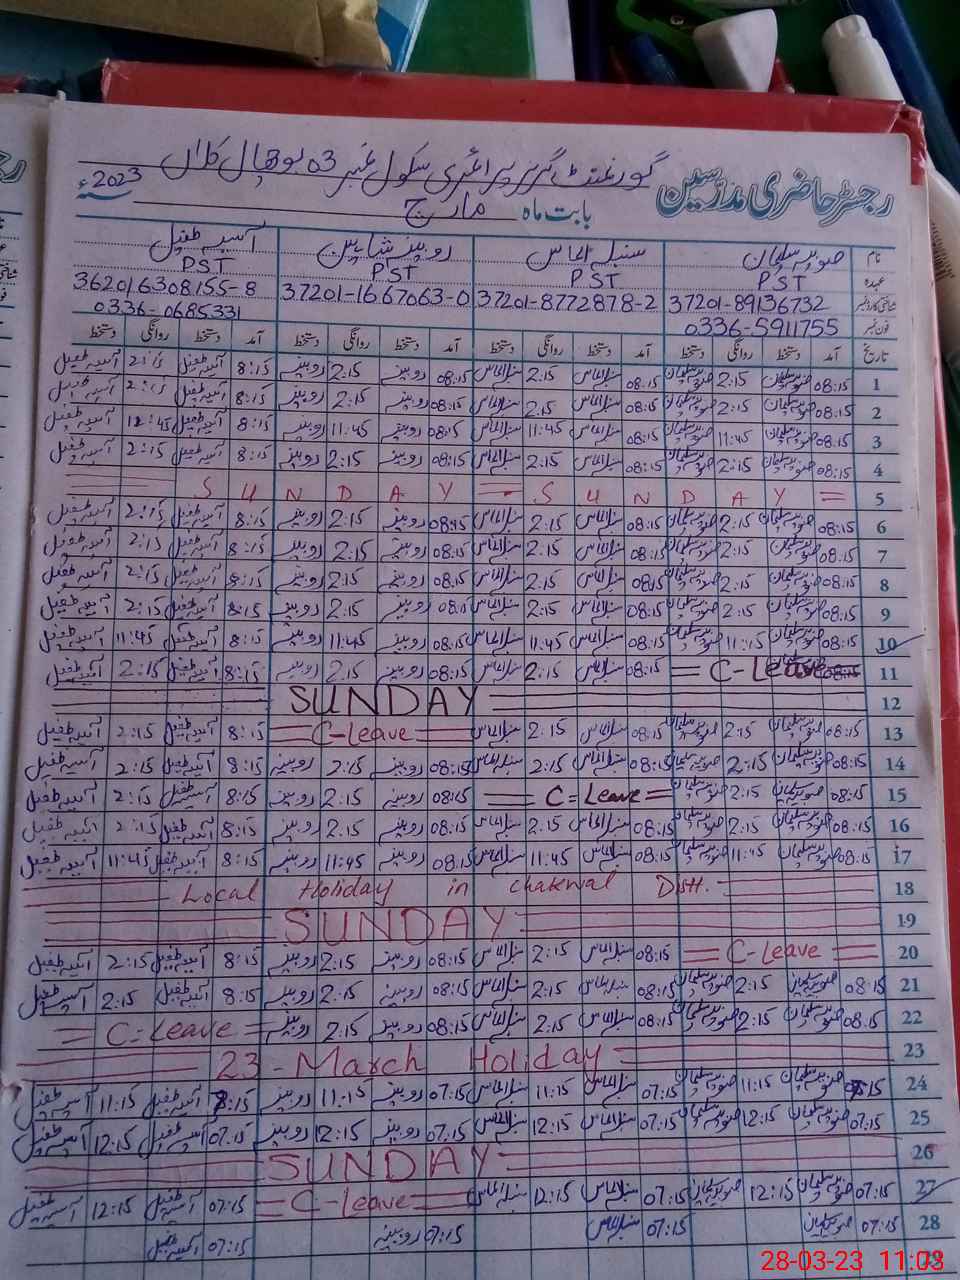 رجسٹر حاضری مدرسین
گورنمنٹ گرلز پرائمری سکول نمبر 03 بوچھال کلاں
بابت ماہ مارچ 2023ء
نام صنوبر سلیمان سنبل الماس روبینہ شاہین آسیہ طفیل
عہدہ PST PST PST PST
شناختی کارڈ نمبر 37201-89136732 37201-8772878-2 37201-1667063-0 362016308155-8
فون نمبر 0336-5911755 0336-0685331
تاریخ آمد دستخط روانگی دستخط آمد دستخط روانگی دستخط آمد دستخط روانگی دستخط آمد دستخط روانگی دستخط
1 08:15 صنوبر سلیمان 2:15 صنوبر سلیمان 08:15 سنبل الماس 2:15 سنبل الماس 08:15 روبینہ 2:15 روبینہ 8:15 آسیہ طفیل 2:15 آسیہ طفیل
2 08:15 صنوبر سلیمان 2:15 صنوبر سلیمان 08:15 سنبل الماس 2:15 سنبل الماس 08:15 روبینہ 2:15 روبینہ 8:15 آسیہ طفیل 2:15 آسیہ طفیل
3 08:15 صنوبر سلیمان 11:45 صنوبر سلیمان 08:15 سنبل الماس 11:45 سنبل الماس 08:15 روبینہ 11:45 روبینہ 8:15 آسیہ طفیل 12:45 آسیہ طفیل
4 08:15 صنوبر سلیمان 2:15 صنوبر سلیمان 08:15 سنبل الماس 2:15 سنبل الماس 08:15 روبینہ 2:15 روبینہ 8:15 آسیہ طفیل 2:15 آسیہ طفیل
5 SUNDAY SUNDAY
6 08:15 صنوبر سلیمان 2:15 صنوبر سلیمان 08:15 سنبل الماس 2:15 سنبل الماس 08:15 روبینہ 2:15 روبینہ 8:15 آسیہ طفیل 2:15 آسیہ طفیل
7 08:15 صنوبر سلیمان 2:15 صنوبر سلیمان 08:15 سنبل الماس 2:15 سنبل الماس 08:15 روبینہ 2:15 روبینہ 8:15 آسیہ طفیل 2:15 آسیہ طفیل
8 08:15 صنوبر سلیمان 2:15 صنوبر سلیمان 08:15 سنبل الماس 2:15 سنبل الماس 08:15 روبینہ 2:15 روبینہ 8:15 آسیہ طفیل 2:15 آسیہ طفیل
9 08:15 صنوبر سلیمان 2:15 صنوبر سلیمان 08:15 سنبل الماس 2:15 سنبل الماس 08:15 روبینہ 2:15 روبینہ 8:15 آسیہ طفیل 2:15 آسیہ طفیل
10 08:15 صنوبر سلیمان 11:15 صنوبر سلیمان 08:15 سنبل الماس 11:45 سنبل الماس 08:15 روبینہ 11:45 روبینہ 8:15 آسیہ طفیل 11:45 آسیہ طفیل
11 C-Leave 08:15 سنبل الماس 2:15 سنبل الماس 08:15 روبینہ 2:15 روبینہ 8:15 آسیہ طفیل 2:15 آسیہ طفیل
12 SUNDAY
13 08:15 صنوبر سلیمان 2:15 صنوبر سلیمان 08:15 سنبل الماس 2:15 سنبل الماس C-Leave 8:15 آسیہ طفیل 2:15 آسیہ طفیل
14 08:15 صنوبر سلیمان 2:15 صنوبر سلیمان 08:15 سنبل الماس 2:15 سنبل الماس 08:15 روبینہ 2:15 روبینہ 8:15 آسیہ طفیل 2:15 آسیہ طفیل
15 08:15 صنوبر سلیمان 2:15 صنوبر سلیمان C=Leave 08:15 روبینہ 2:15 روبینہ 8:15 آسیہ طفیل 2:15 آسیہ طفیل
16 08:15 صنوبر سلیمان 2:15 صنوبر سلیمان 08:15 سنبل الماس 2:15 سنبل الماس 08:15 روبینہ 2:15 روبینہ 8:15 آسیہ طفیل 2:15 آسیہ طفیل
17 08:15 صنوبر سلیمان 11:45 صنوبر سلیمان 08:15 سنبل الماس 11:45 سنبل الماس 08:15 روبینہ 11:45 روبینہ 8:15 آسیہ طفیل 11:45 آسیہ طفیل
18 Local Holiday in Chakwal Distt.
19 SUNDAY
20 C-Leave 08:15 سنبل الماس 2:15 سنبل الماس 08:15 روبینہ 2:15 روبینہ 8:15 آسیہ طفیل 2:15 آسیہ طفیل
21 08:15 صنوبر سلیمان 2:15 صنوبر سلیمان 08:15 سنبل الماس 2:15 سنبل الماس 08:15 روبینہ 2:15 روبینہ 8:15 آسیہ طفیل 2:15 آسیہ طفیل
22 08:15 صنوبر سلیمان 2:15 صنوبر سلیمان 08:15 سنبل الماس 2:15 سنبل الماس 08:15 روبینہ 2:15 روبینہ C-Leave
23 23-March Holiday
24 07:15 صنوبر سلیمان 11:15 صنوبر سلیمان 07:15 سنبل الماس 11:15 سنبل الماس 07:15 روبینہ 11:15 روبینہ 7:15 آسیہ طفیل 11:15 آسیہ طفیل
25 07:15 صنوبر سلیمان 12:15 صنوبر سلیمان 07:15 سنبل الماس 12:15 سنبل الماس 07:15 روبینہ 12:15 روبینہ 07:15 آسیہ طفیل 12:15 آسیہ طفیل
26 SUNDAY
27 07:15 صنوبر سلیمان 12:15 صنوبر سلیمان 07:15 سنبل الماس 12:15 سنبل الماس C-Leave 07:15 آسیہ طفیل 12:15 آسیہ طفیل
28 07:15 صنوبر سلیمان 07:15 سنبل الماس 07:15 روبینہ 07:15 آسیہ طفیل
29
28-03-23 11:03